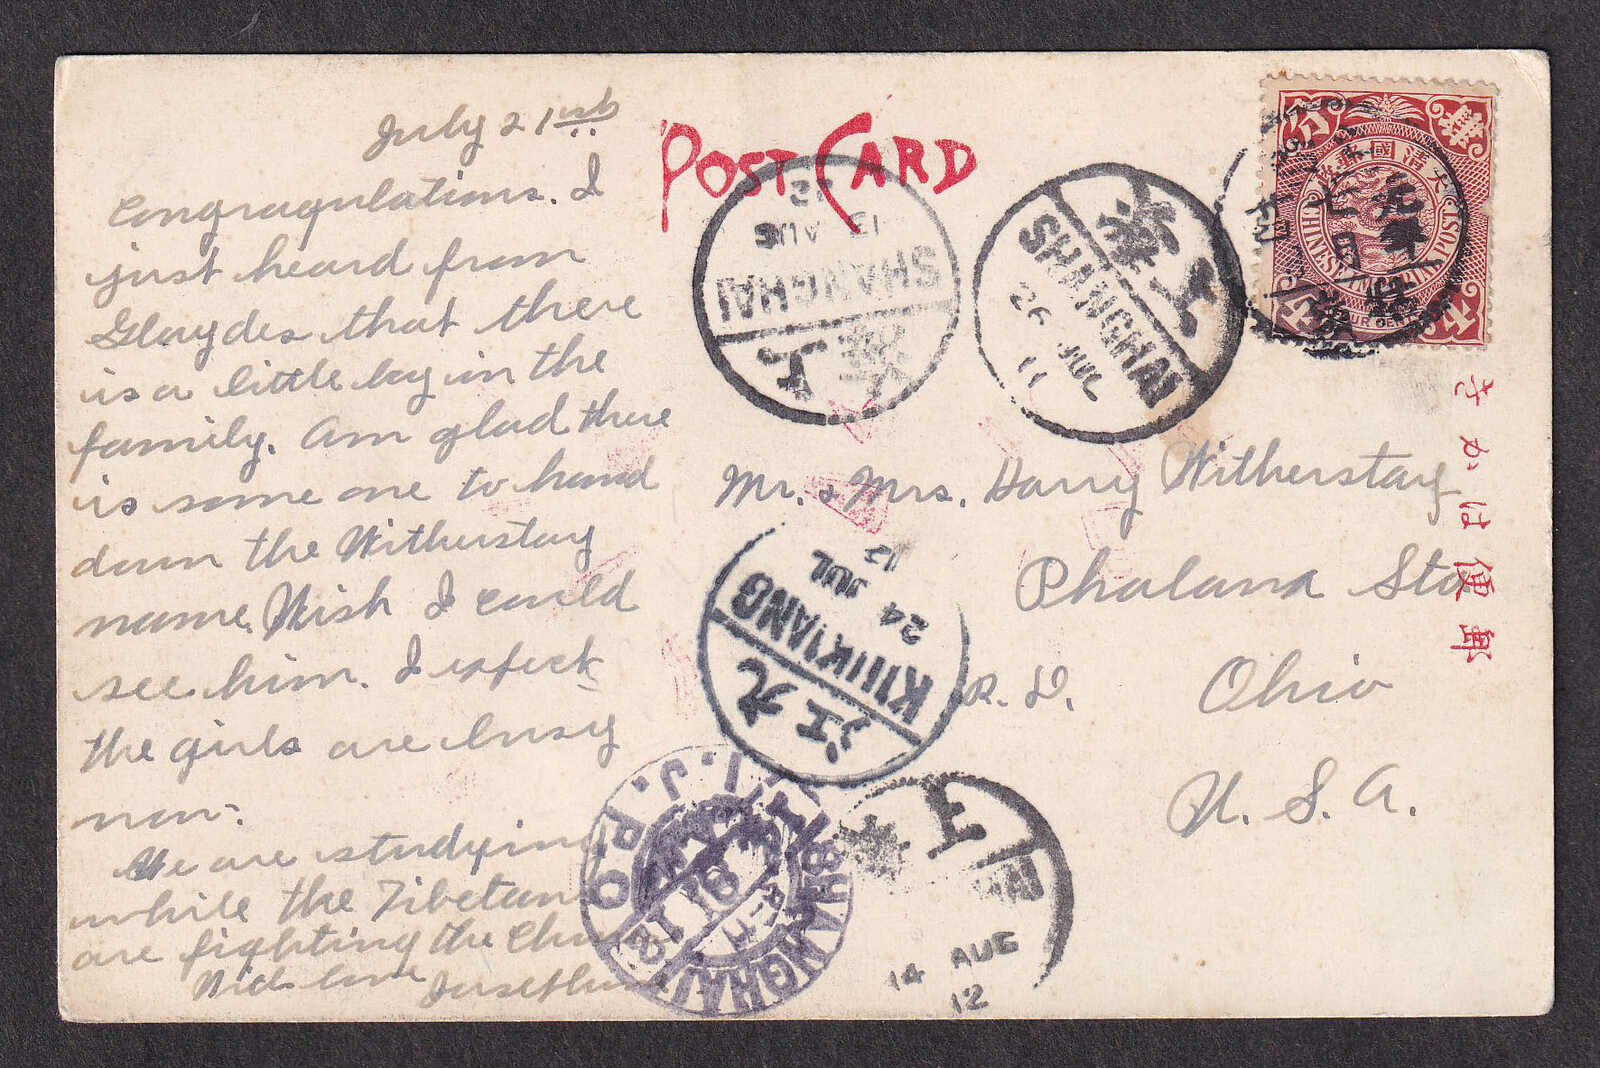 July 21st
Congragulations. I
just heard from
Glaydes that there
is a little boy in the
family. Am glad there
is some one to hand
down the Witherstay
name. Wish I could
see him. I expect
the girls are busy
now.
We are studying
while the Tibetan
are fighting the
With love
POST CARD
SHANGHAI
13 AUG
12
上海
上海
SHANGHAI
26 JUL
大清國郵政
CHINESE IMPERIAL POST
きかは便郵
Mr. & Mrs. Harry Witherstay
Phalanx Sta
R. D. Ohio
U. S. A.
九江
KIUKIANG
24 JUL
12
SHANGHAI
I.J.P.O.
上海
14 AUG
12